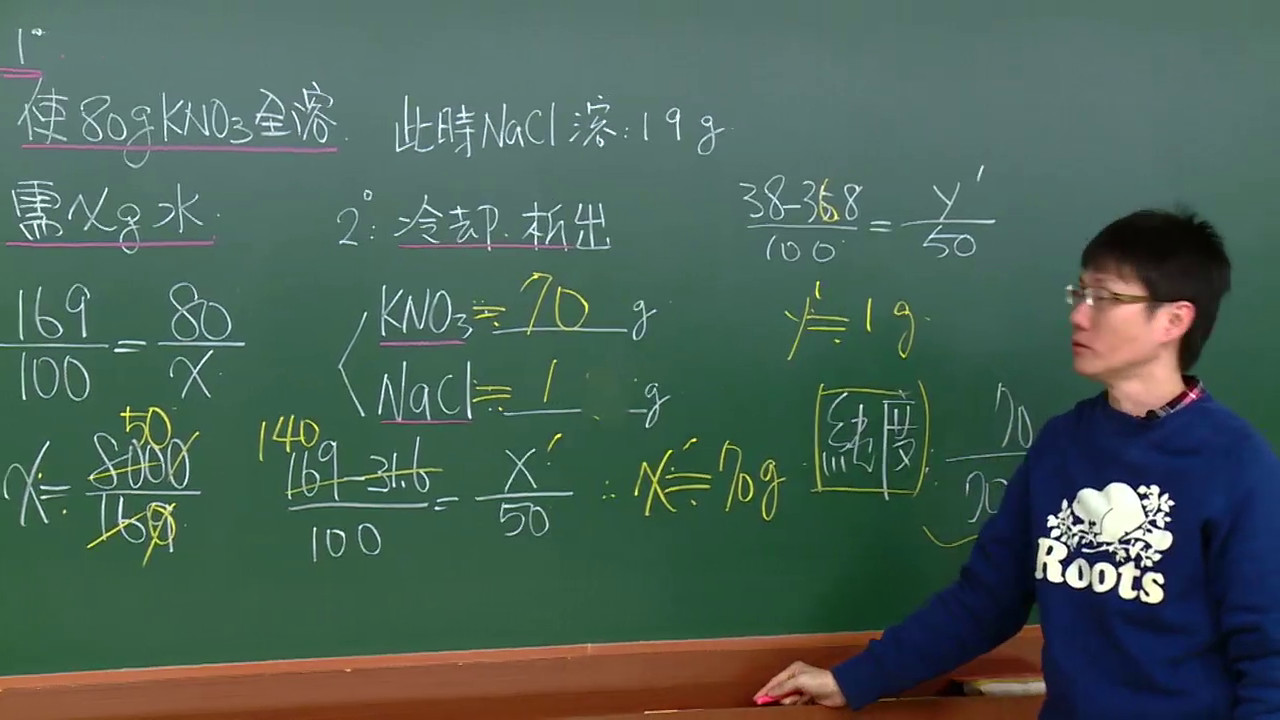 1°
使80gKNO3全溶
需xg水
169/100 = 80/x
x≒ 8000/160 50
此時NaCl溶:19g
2°:冷却.析出
KNO3≒70g
NaCl≒1g
140
169-31.6/100 = x'/50 ∴x'≒70g
38-36.8/100 = y'/50
y'≒1g
純度: 70
Roots